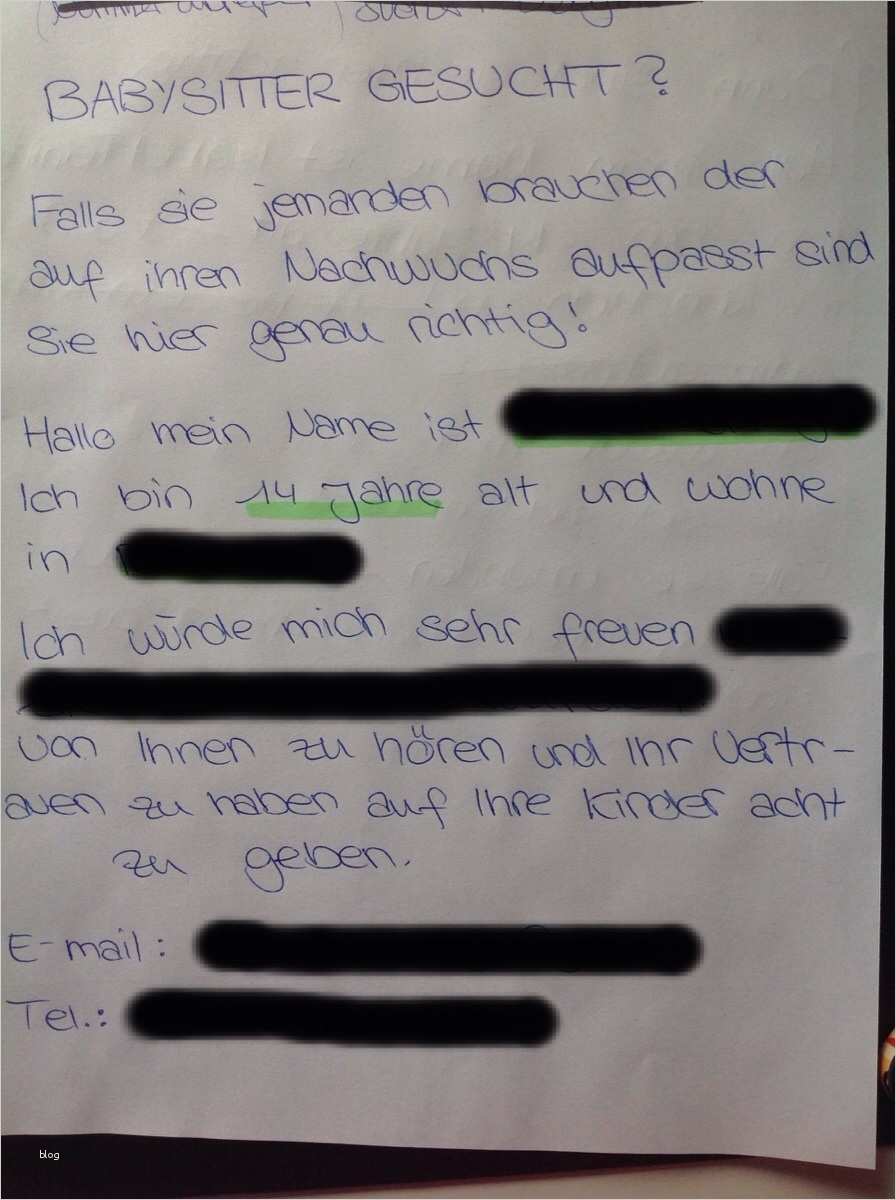 BABYSITTER GESUCHT?
Falls sie jemanden brauchen der
auf ihren Nachwuchs aufpasst sind
sie hier genau richtig!
Hallo mein Name ist
Ich bin 14 Jahre alt und wohne
in
Ich würde mich sehr freuen
von Ihnen zu hören und Ihr Vertr-
auen zu haben auf Ihre Kinder acht
zu geben.
E-mail:
Tel.:
blog